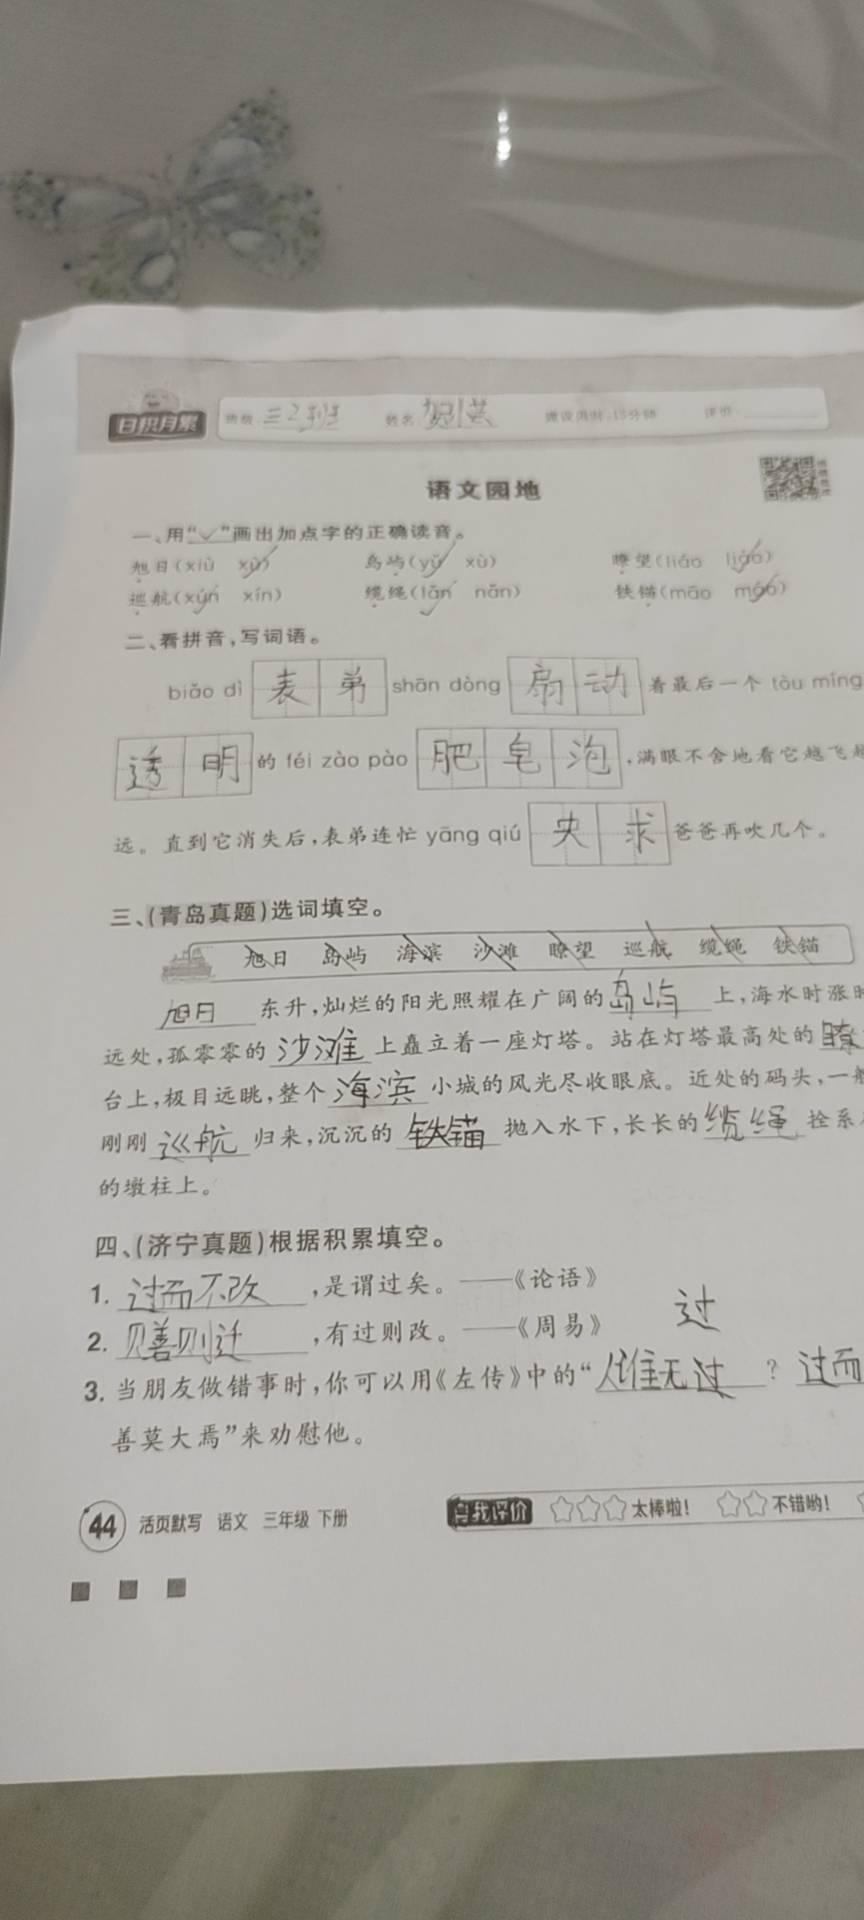 日积月累 班级 三2班 姓名 建议用时:15分钟 评价
语文园地
一、用“✓”画出加点字的正确读音。
旭日(xiù xù) 岛屿(yǔ xù) 瞭望(liáo liào)
巡航(xún xín) 缆绳(lǎn nǎn) 铁锚(māo máo)
二、看拼音,写词语。
biǎo dì 表弟 shān dòng 扇动 着最后一个 tòu míng
透明 的 féi zào pào 肥皂泡 ,满眼不舍地看它越飞越
远。直到它消失后,表弟连忙 yāng qiú 央求 爸爸再吹几个。
三、(青岛真题)选词填空。
旭日 岛屿 海滨 沙滩 瞭望 巡航 缆绳 铁锚
旭日 东升,灿烂的阳光照耀在广阔的 岛屿 上,海水时涨时
远处,孤零零的 沙滩 上矗立着一座灯塔。站在灯塔最高处的 瞭
台上,极目远眺,整个 海滨 小城的风光尽收眼底。近处的码头,一
刚刚 巡航 归来,沉沉的 铁锚 抛入水下,长长的 缆绳 拴系
的墩柱上。
四、(济宁真题)根据积累填空。
1. 过而不改 ,是谓过矣。——《论语》
过
2. 见善则迁 ,有过则改。——《周易》
3. 当朋友做错事时,你可以用《左传》中的“人谁无过 ? 过而
善莫大焉”来劝慰他。
44 活页默写 语文 三年级 下册 自我评价 ☆☆☆太棒啦! ☆☆不错哟!